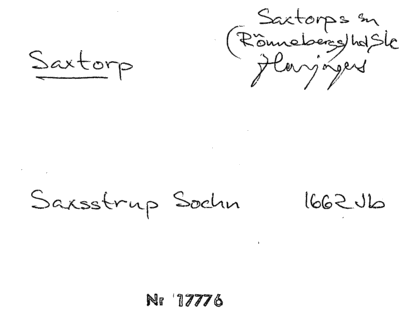 Saxtorps sn
Saxtorp
(Rönnebergs) hd Sk
Harjagers
Saxsstrup Sochn 1662 Jb
Nr 17776